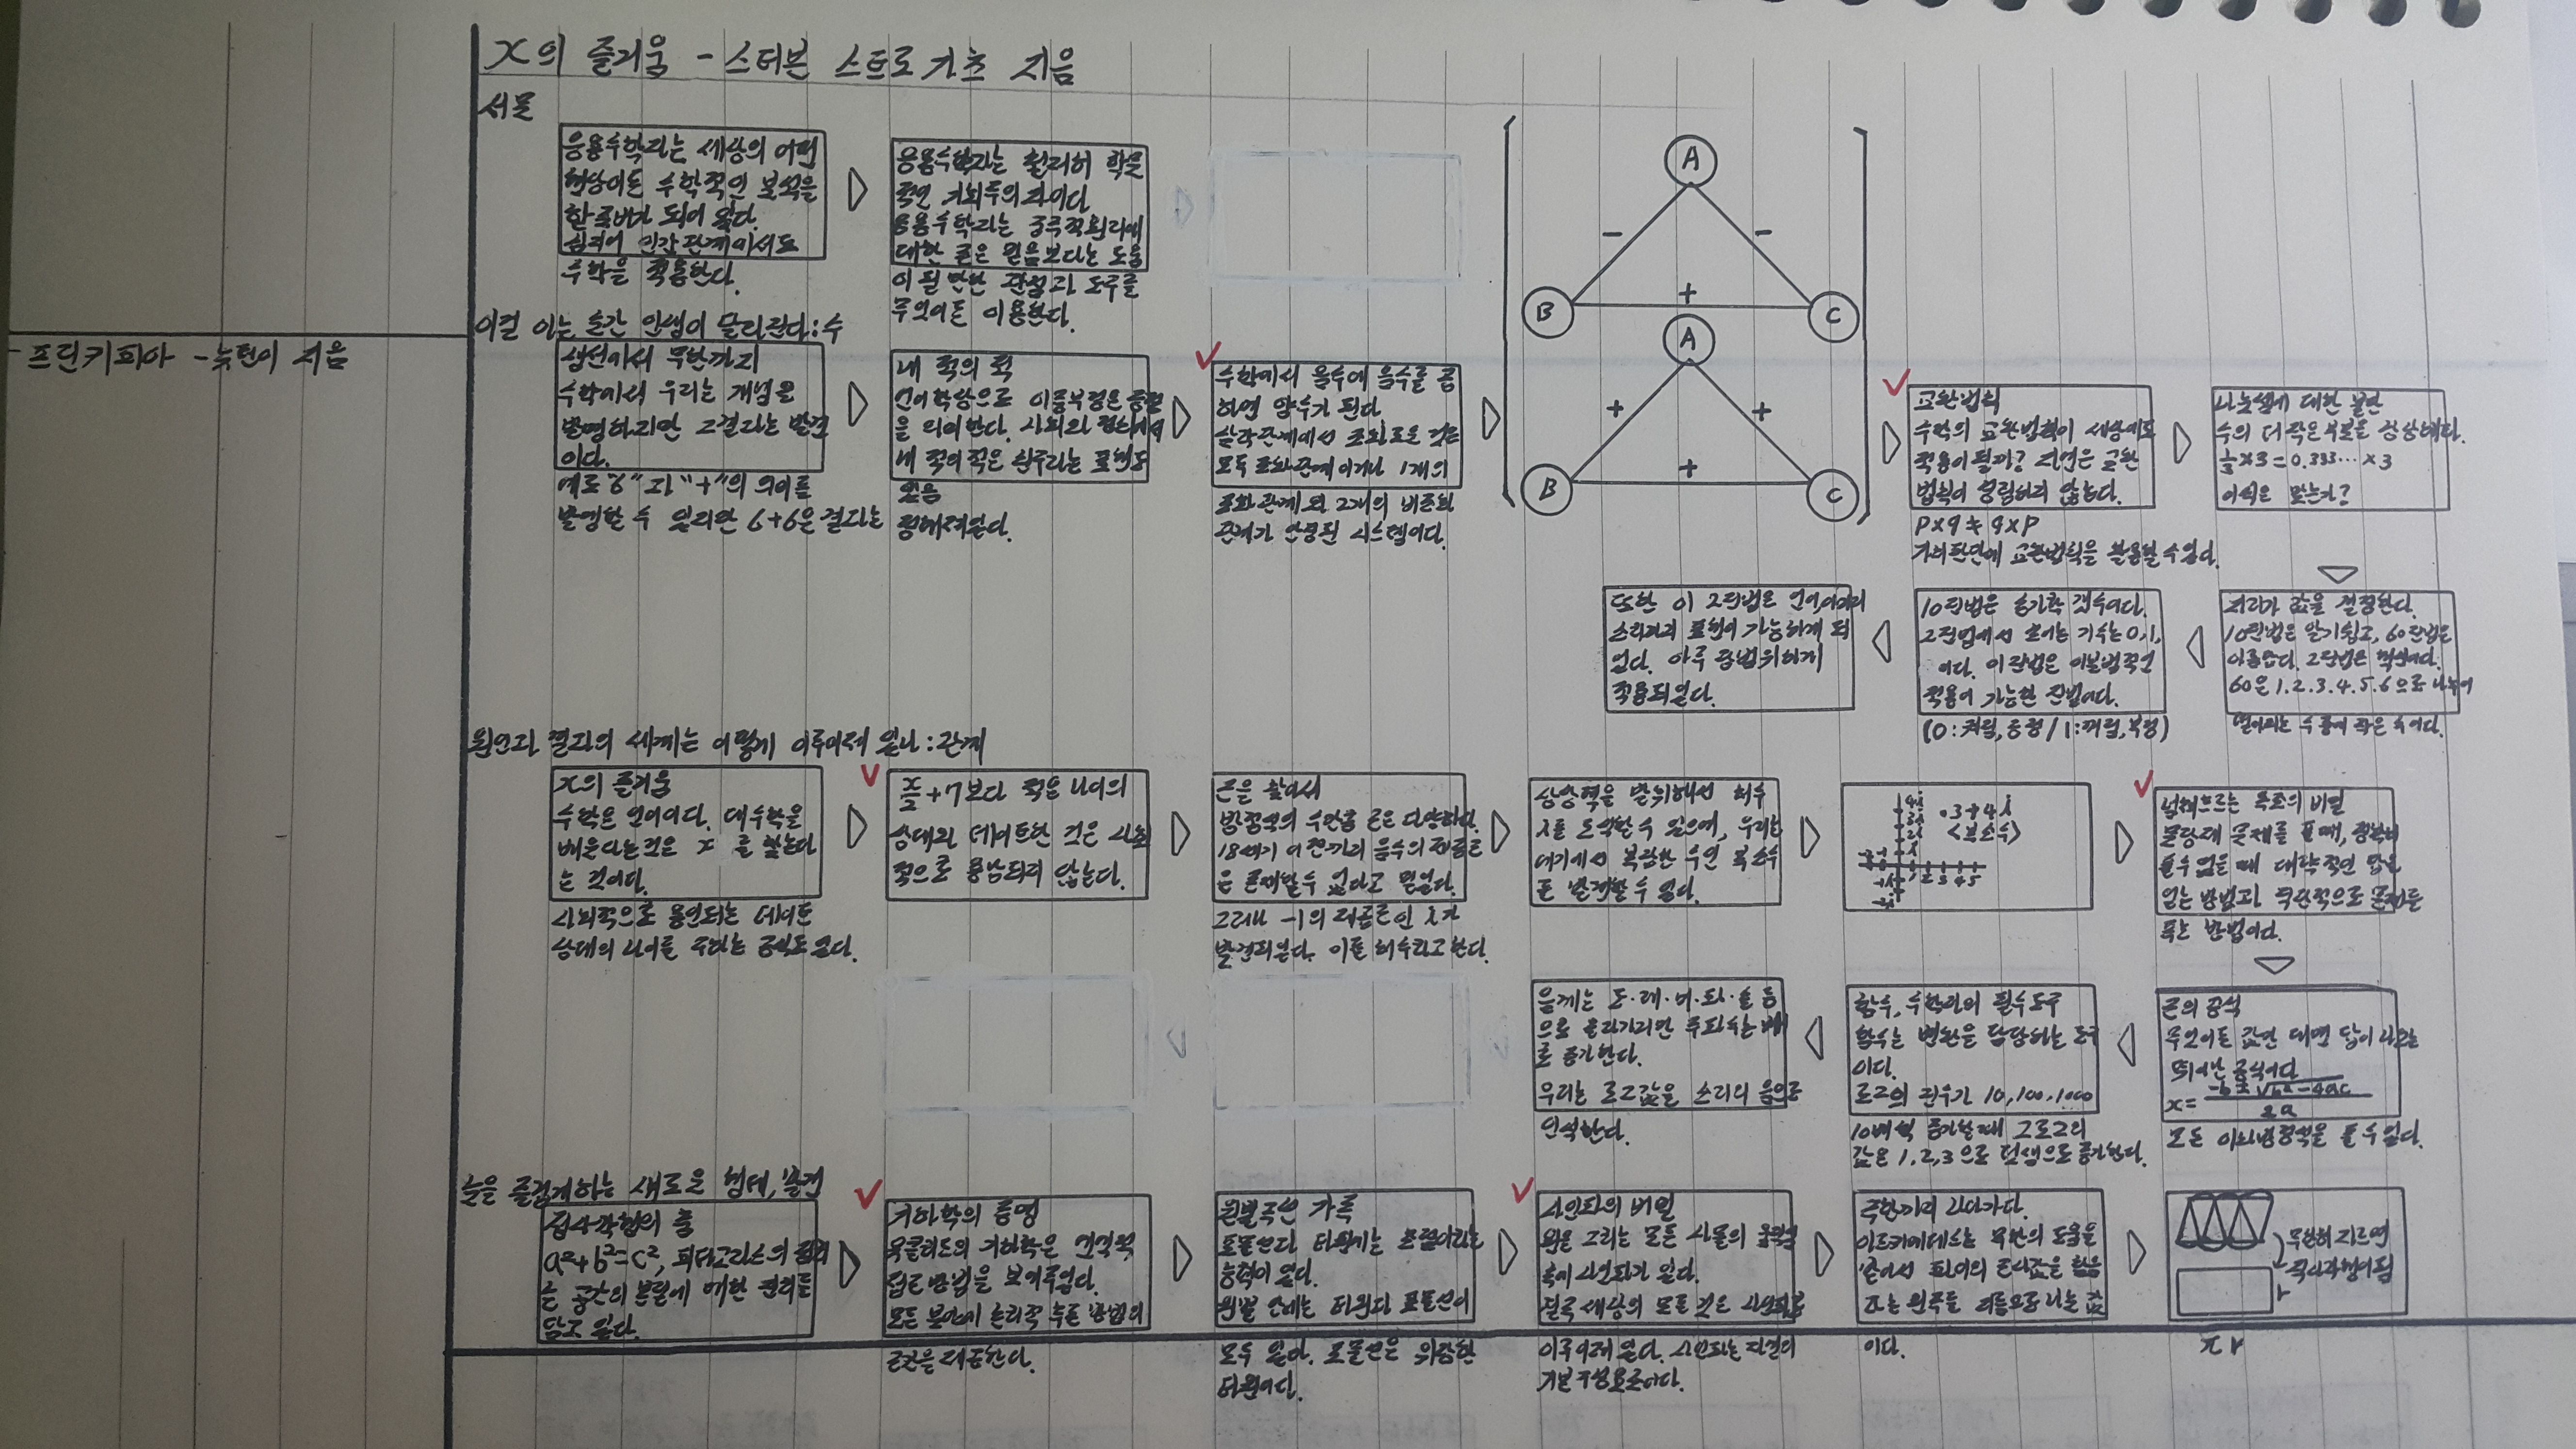 x의 즐거움 - 스티븐 스트로가츠 지음
서문
응용수학자는 세상의 어떤
현상이든 수학적인 분석을
한 준비가 되어 있다.
심지어 인간관계에서도
수학을 적용한다.
응용수학자는 철저히 학문
적인 기회주의자이다
응용수학자는 궁극적원리에
대한 굳은 믿음보다는 도움
이 될 만한 관점과 도구를
무엇이든 이용한다.
이걸 아는 순간 인생이 달라진다: 수
프린키피아 - 뉴턴이 지음
생선에서 무한까지
수학에서 우리는 개념을
발명하지만 그결과는 발견
이다.
예로 "6"과 "+"의 의미를
발명할 수 있지만 6+6은 결과는
정해져있다.
내 적의 적
언어학상으로 이중부정은 긍정
을 의미한다. 사회와 정치에서
내 적의 적은 친구라는 표현도
있음
수학에서 음수에 음수를 곱
하면 양수가 된다
삼각관계에서 조화로운 것은
모두 조화관계이거나 1개의
조화관계와 2개의 비조화
관계가 안정된 시스템이다.
A
-
-
B
+
C
A
+
+
B
+
C
교환법칙
수학의 교환법칙이 세상에도
적용이 될까? 자연은 교환
법칙이 성립하지 않는다.
p×q≠q×p
가치판단에 교환법칙을 활용할 수 있다.
나눗셈에 대한 불만
수의 더 작은 부분을 상상해라.
1/3×3=0.333…×3
이식은 맞는가?
자리가 값을 결정한다.
10진법은 알기쉽고, 60진법은
아름답다. 2진법은 혁신이다.
60은 1.2.3.4.5.6으로 나누어
떨어지는 수 중에 작은 수이다.
10진법은 손가락 갯수이다.
2진법에서 쓰이는 기수는 0,1,
이다. 이진법은 이분법적인
적용이 가능한 진법이다.
(0:켜짐,긍정/1:꺼짐,부정)
또한 이 2진법은 언어,이미지
소리까지 표현이 가능하게 되
었다. 아주 광범위하게
적용되있다.
원인과 결과의 세계는 어떻게 이루어져 있나: 관계
x의 즐거움
수학은 언어이다. 대수학을
배운다는것은 x를 찾는다
는 것이다.
사회적으로 용인되는 데이트
상대의 나이를 구하는 공식도 있다.
x/2+7보다 적은 나이의
상대와 데이트한 것은 사회
적으로 용납되지 않는다.
근을 찾아서
방정식의 수만큼 근은 다양하다.
18세기 이전까지 음수의 제곱근
은 존재할수 없다고 믿었다.
그러나 -1의 제곱근인 i가
발견되었다. 이를 허수라고한다.
상상력을 발휘해선 허수
i를 도약할 수 있으며, 우리는
여기에서 복잡한 수인 복소수
를 발견할 수 있다.
4i
3i
2i
i
·3+4i
<복소수>
1 2 3 4 5
-i
-2i
넘쳐흐르는 욕조의 비밀
문장제 문제를 풀때, 정확히
풀수 없을 때 대략적인 답을
얻는 방법과 극단적으로 문제를
푸는 방법이다.
근의 공식
무엇이든 값만 대면 답이 나오는
뛰어난 공식이다
x= -b±√b²-4ac / 2a
모든 이차방정식을 풀 수 있다.
함수, 수학자의 필수도구
함수는 변환을 담당하는 도구
이다.
로그의 진수가 10,100,1000
10배씩 증가할때 그 로그의
값은 1,2,3으로 덧셈으로 증가한다.
음계는 도·레·미·파·솔 등
으로 올라가지만 주파수는 배
로 증가한다.
우리는 로그값을 소리의 음으로
인식한다.
눈을 즐겁게하는 새로운 형태, 발견
직사각형의 춤
a²+b²=c², 피타고라스의 정리
는 공간의 본질에 대한 진리를
담고 있다.
기하학의 증명
유클리드의 기하학은 연역적
접근방법을 보여주었다.
모든 분야에 논리적 추론 방법의
근간을 제공한다.
원뿔곡선 가족
포물선과 타원에는 초점이라는
능력이 있다.
원뿔 안에는 타원과 포물선이
모두 있다. 포물선은 위장한
타원이다.
사인파의 비밀
원을 그리는 모든 사물의 움직임
속에 사인파가 있다.
결국 세상의 모든 것은 사인파로
이루어져 있다. 사인파는 자연의
기본구성요소이다.
극한까지 나아가다.
아르키메데스는 무한의 도움을
받아서 파이의 근사값을 찾음
π는 원주를 지름으로 나눈 값
이다.
무한히 자르면
직사각형이 됨
r
πr